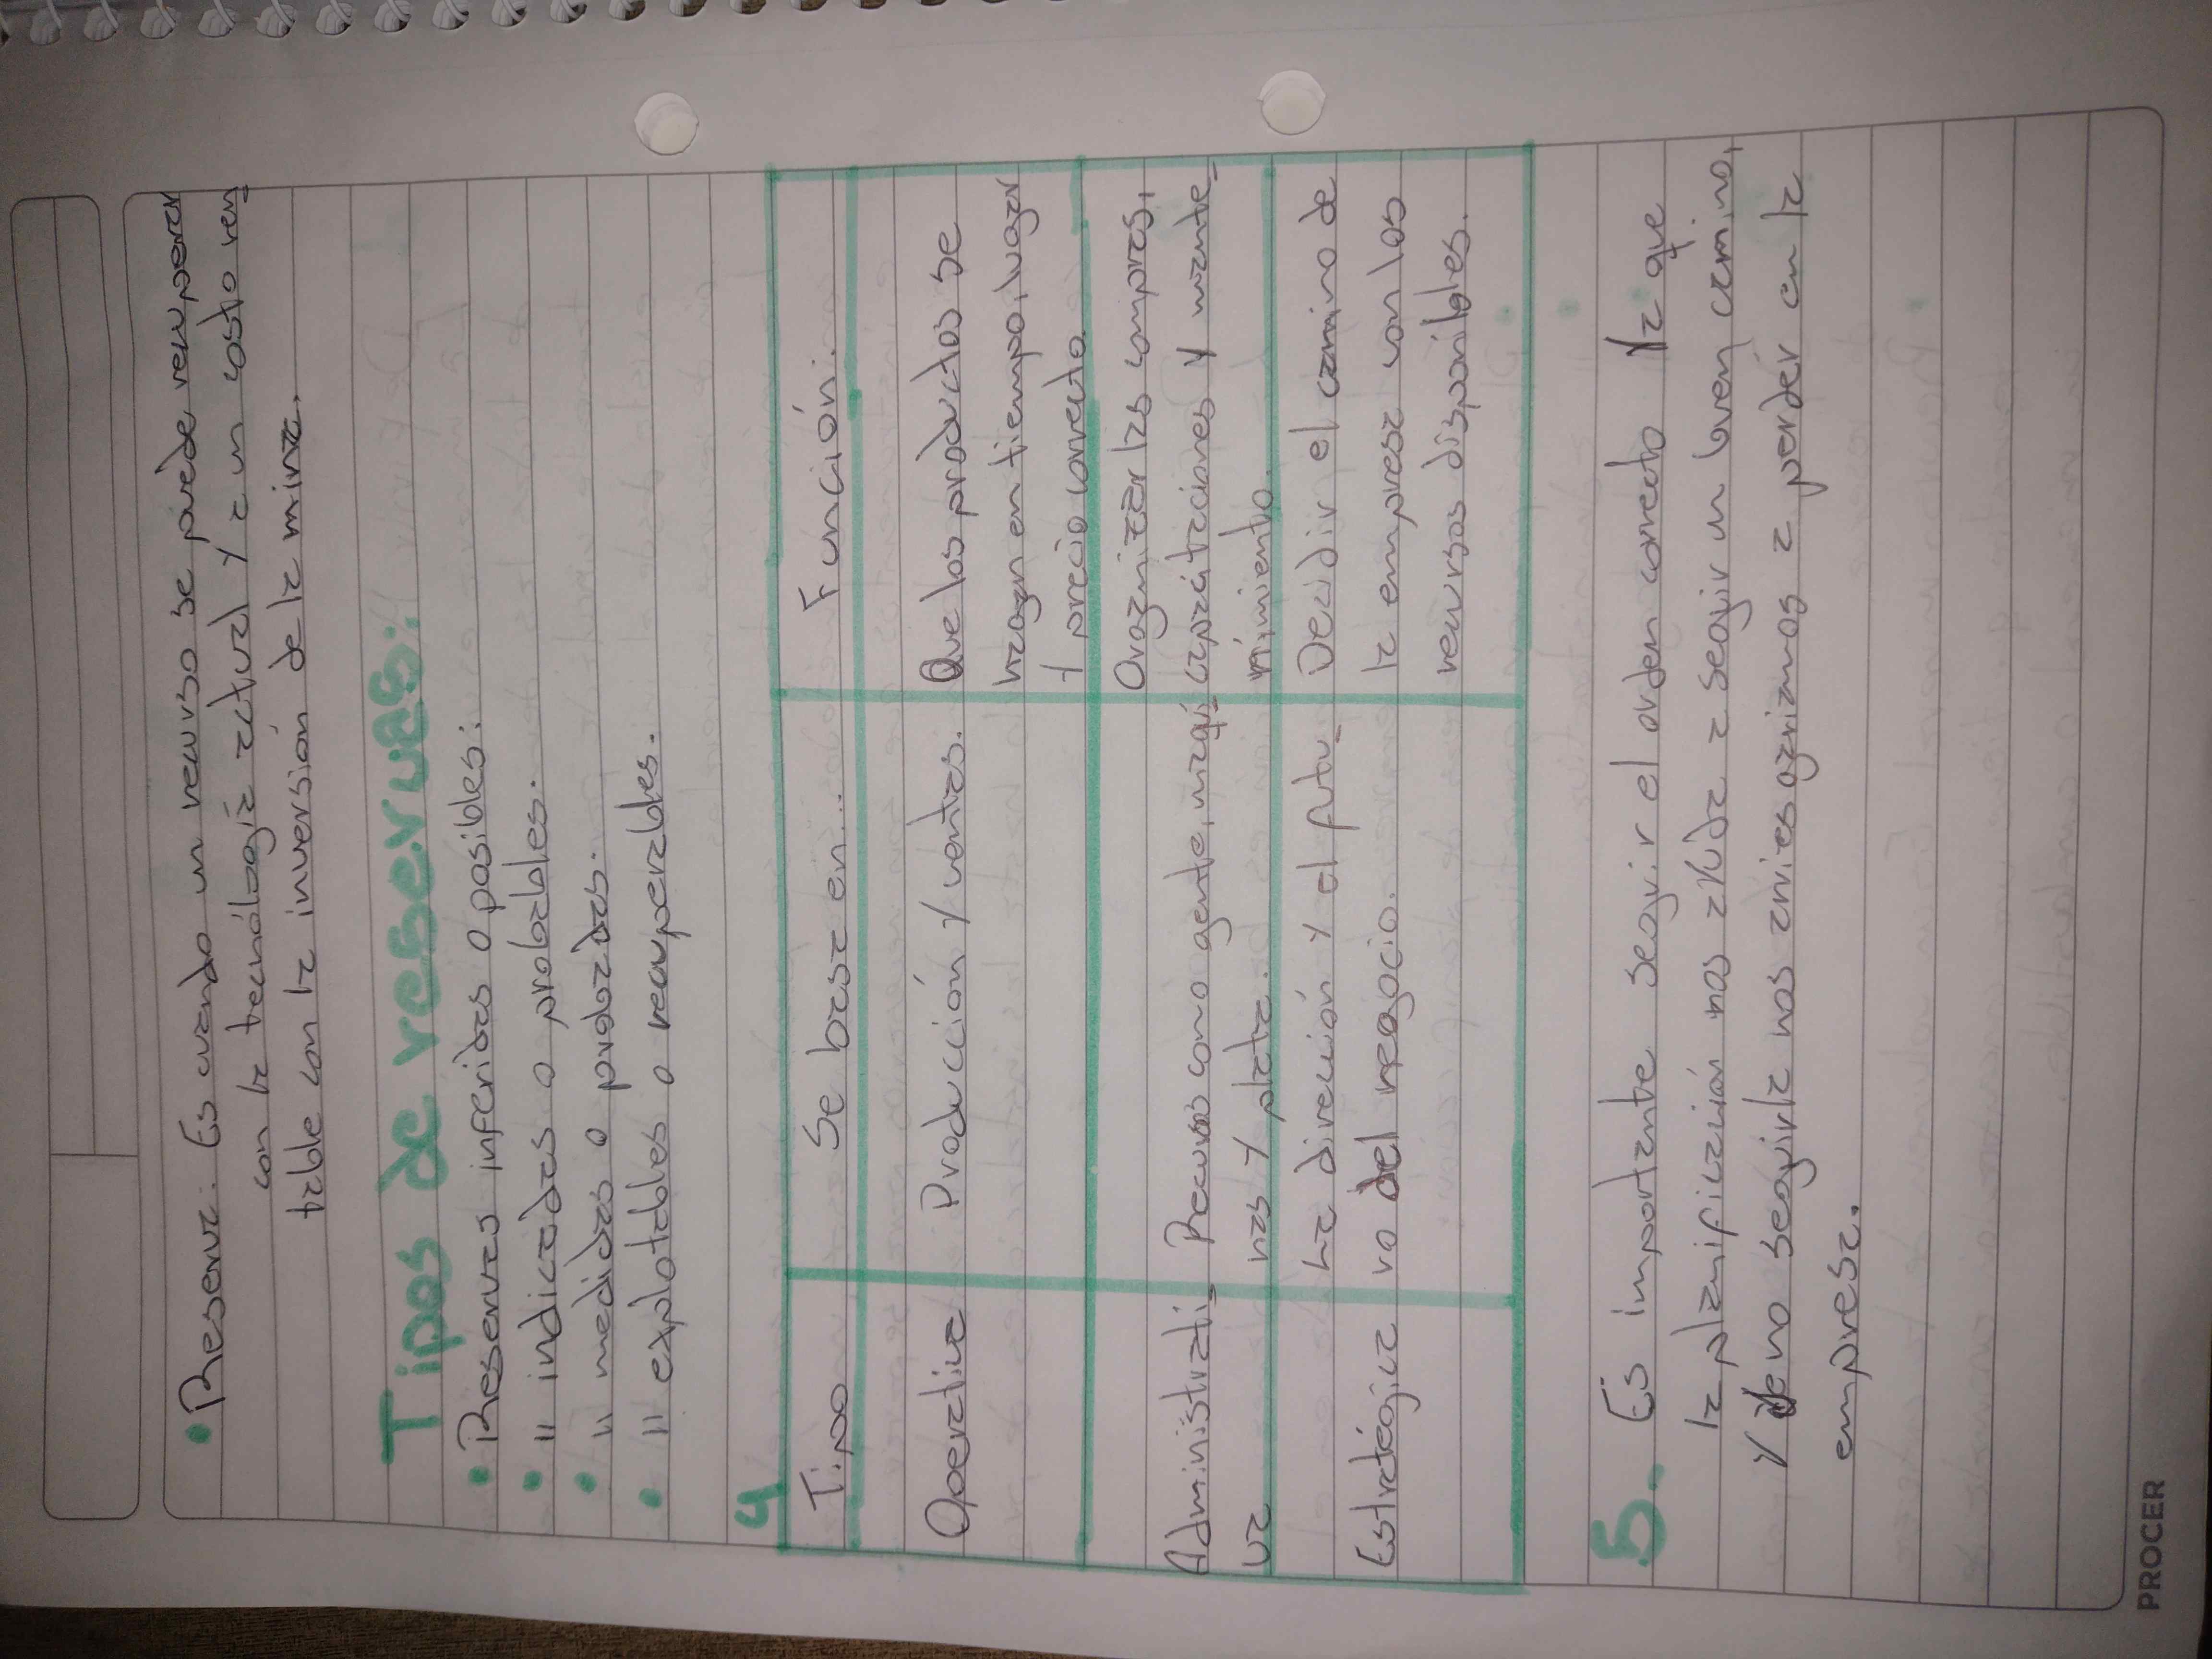 • Reserva: Es cuando un recurso se puede recuperar
con la tecnólogía actual y a un costo ren
table con la inversión de la mina.
Tipos de reservas:
• Reservas inferidas o posibles:
• " indicadas o probables.
• " medidas o probadas.
• " explotables o recuperables.
4
Tipo Se basa en... Función.
Operativa Producción y ventas. Que los productos se
hagan en tiempo, lugar
y precio correcto.
Administrati- Recursos como agente, maqui- Oragnizar las compras,
va nas y plata. capacitaciones y mante-
nimiento.
Estratégica La dirección y el futu- Decidir el camino de
ro del negocio. la empresa con los
recursos disponibles.
5. Es importante seguir el orden correcto ya que
la planificación nos ayuda a seguir un buen camino,
y de no seguirla nos arriesgariamos a perder en la
empresa.
PROCER